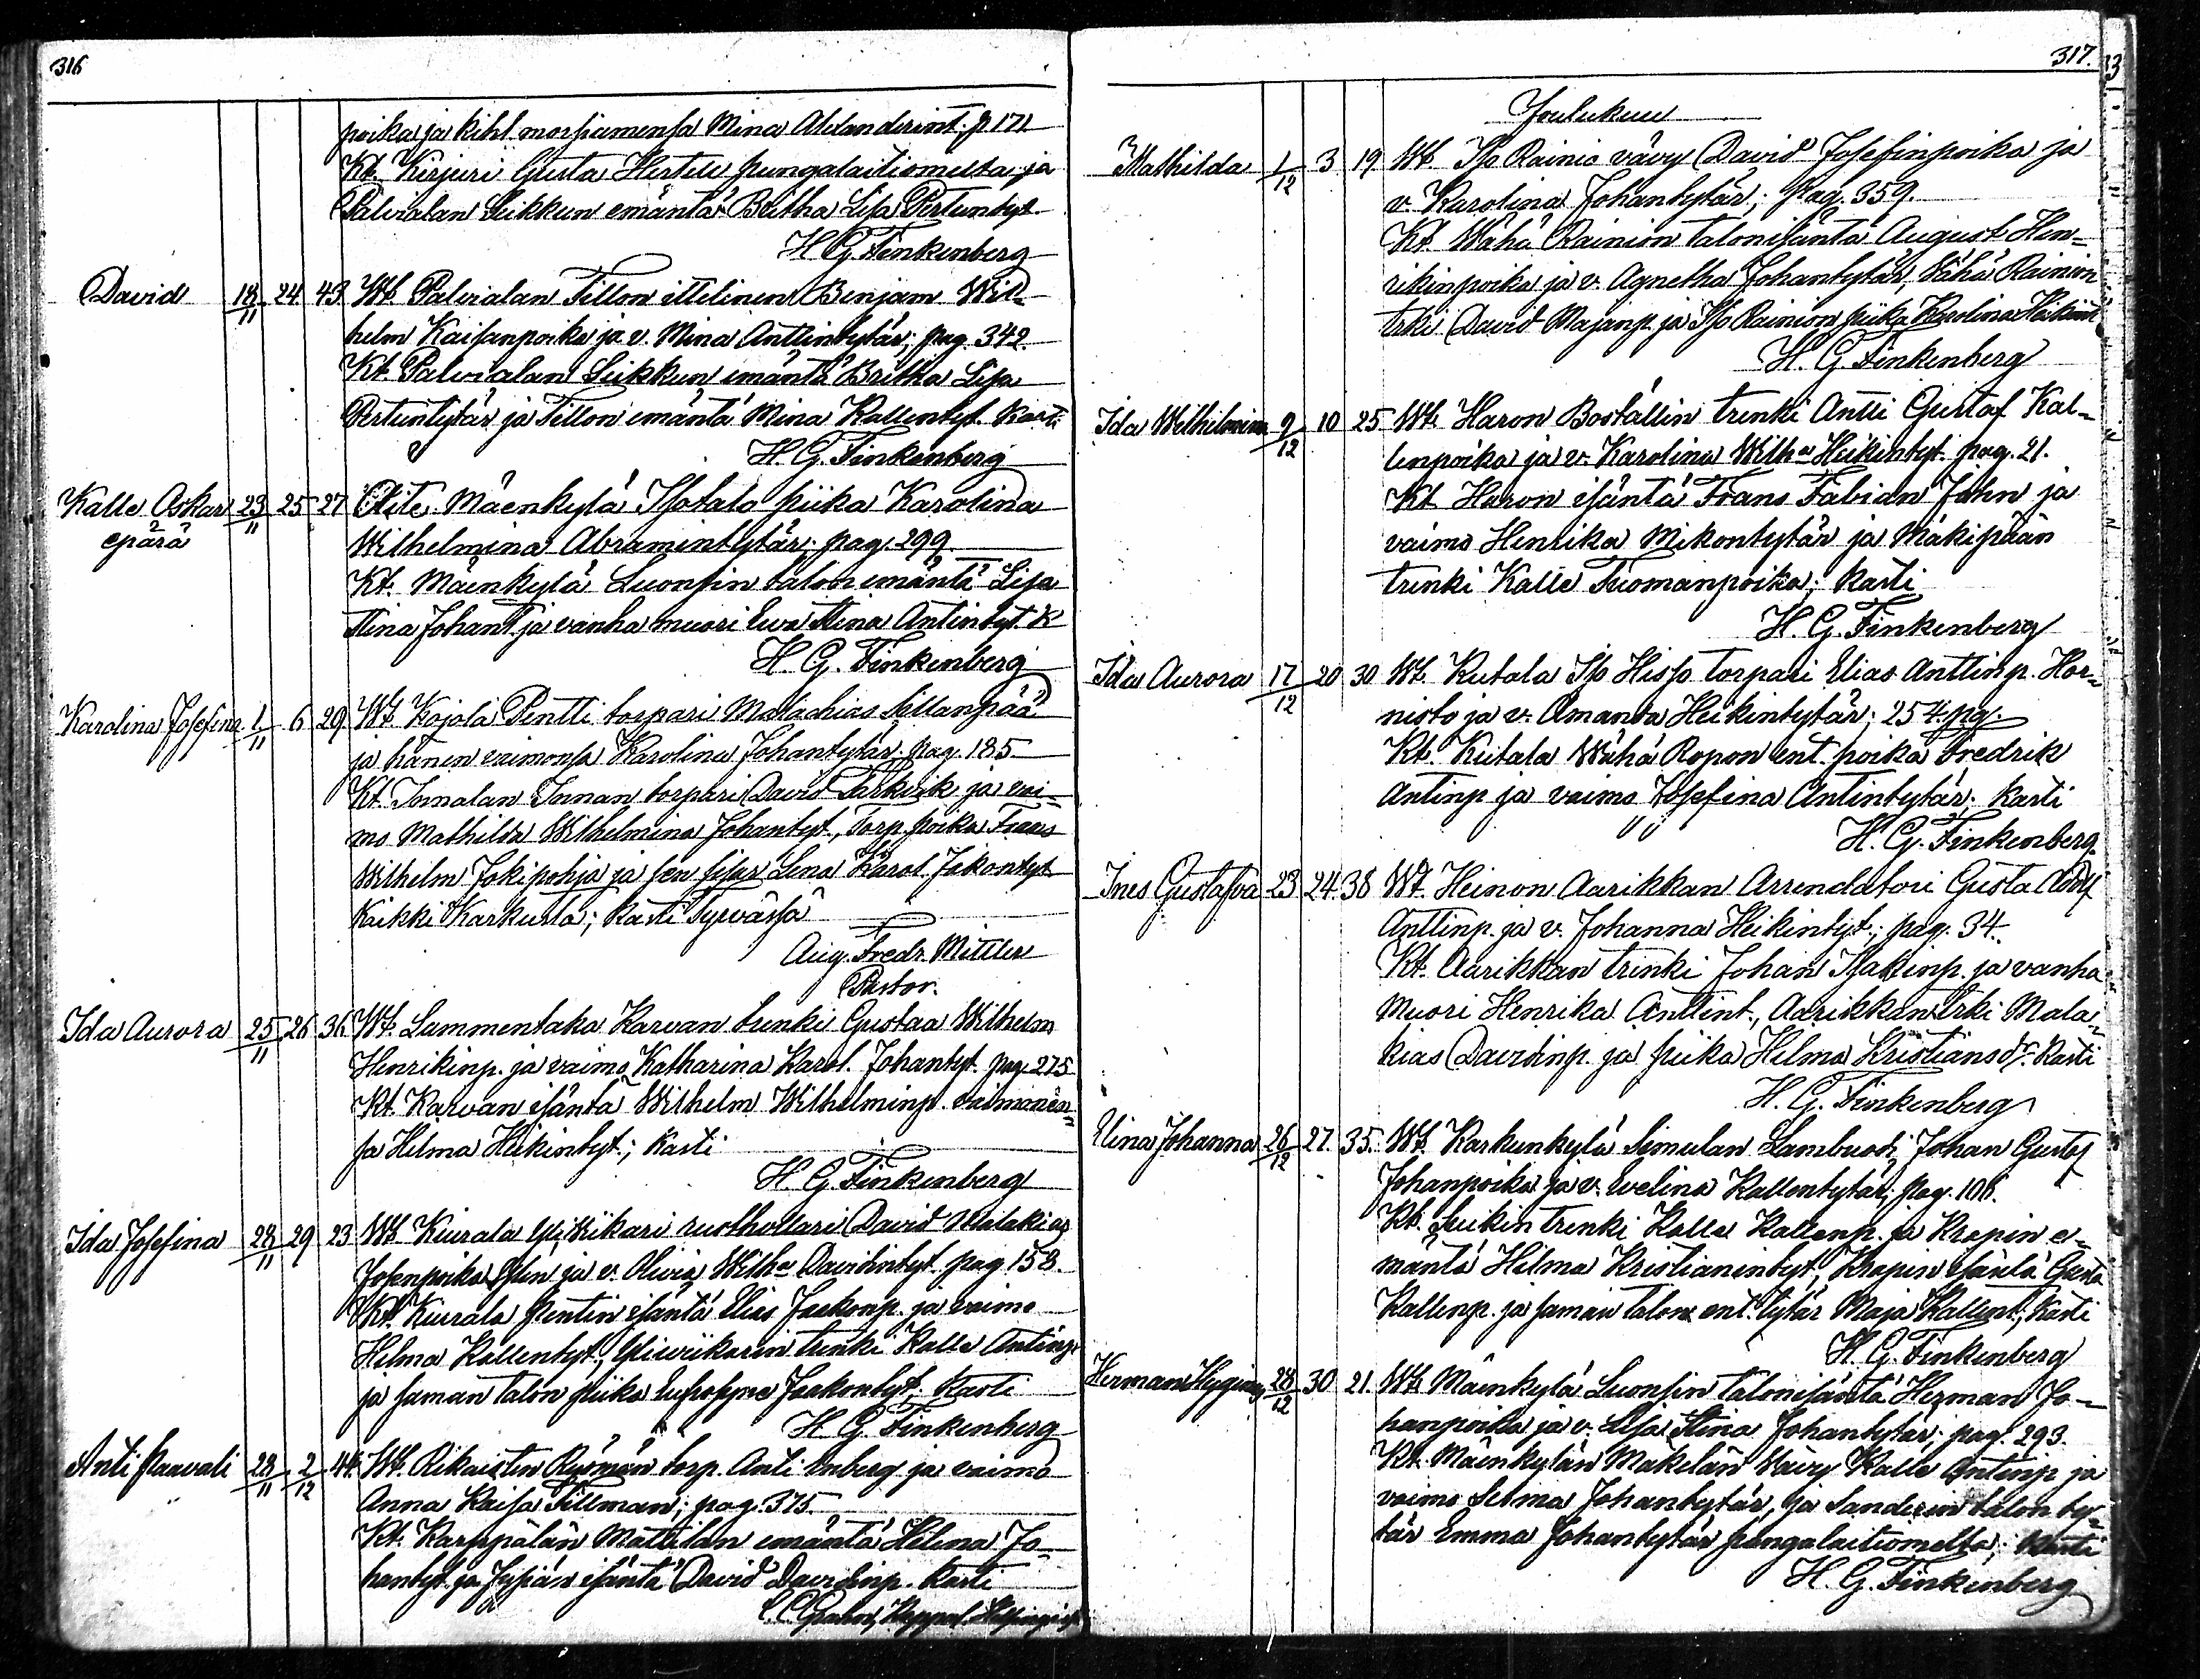 316
poika ja kihl. morsiamensa Mina Alexanderint; p 171
Kt. Kirjuri Gusta Hertell pungalaitiomelta ja
Palvialan Seikkun emäntä Britha Lisa Pertuntyt
H. G. Finkenberg
David 18/11 24 43 Wt. Palvialan Tillon ittelinen Benjam Wil-
helm Kaisanpoika ja v. Mina Anttintytär; pag. 342.
Kt. Palvialan Seikkun emäntä Britha Lisa
Pertuntytär ja Tillon emäntä Mina Kallentyt. Kasti
H. G. Finkenberg
Kalle Oskar 23/11 25 27 Äite. Mäenkylä Isotalo piika Karolina
epärä Wilhelmina Abramintytär; pag. 299
Kt. Mäenkylä Luonsin talon emäntä Lisa
Stina Johant ja vanha muori Ewa Stina Antintyt. K
H. G. Finkenberg
Karolina Josefina 1/11 6 29 Wt. Kojola Pentti torpari Malachias Sillanpää
ja hänen vaimonsa Karolina Johantytär. pag. 185
Kt. Tomalan torpari David ja vai-
mo Mathilda Wilhelmina Johantyt, Torp. poika Frans
Wilhelm Jokipohja ja sen sisar Lena Karol. Jakontyt
Kaikki Karkusta; Kasti Tyrväässä
Aug. Fredr. Mittler
Pastor.
Ida Aurora 25/11 26 36 Wt. Lammentaka Karvan trenki Gustaa Wilhelm
Henrikinp. ja vaimo Katharina Karol. Johantyt. pag. 275
Kt. Karvan isäntä Wilhelm Wilhelminp. vaimonen-
sa Helma Heikintyt; Kasti
H. G. Finkenberg
Ida Josefina 28/11 29 23 Wt. Kiurala Yliwiikari ruothollari David Malakias
ja v. Olivia Wilh:a Davidintyt. pag. 158.
Kt. Kiurala Pentin isäntä Elias Jaakonp. ja vaimo
Helma Kallentyt, Yliwiikarin trenki Kalle Antinp.
ja saman talon piika Eufrosyne Jaakontyt; Kasti
H. G. Finkenberg
Anti Paavali 28/11 2/12 44 Wt. Rikaisten torp. Anti ja vaimo
Anna Kaisa Tillman; pag. 375.
Kt. Karppälän Mattilan emäntä Helena Jo-
hantyt. ja isäntä David Davidinp. Kasti
317.
Joulukuu
Mathilda 1/12 3 19 Wt. Iso Rainio vävy David Josefinpoika ja
v. Karolina Johantytär; pag. 359.
Kt. Wähä Rainion talonisäntä August Hen-
rikinpoika ja v. Agnetha Johantytär, Wähä Rainion
trki David Majanp. ja Iso Rainion piika Karolina Heikint
H. G. Finkenberg
Ida Wilhelmina 9/12 10 25 Wt. Haron Boställin trenki Antti Gustaf Kal-
lenpoika ja v. Karolina Wilh:a Heikintyt. pag. 21.
Kt. Haron isäntä Frans Fabian John ja
vaimo Henrika Mikontytär ja Mäkipään
trenki Kalle Tuomanpoika; Kasti
H. G. Finkenberg
Ida Aurora 17/12 20 30 Wt. Kutala Iso Hisso torpari Elias Anttinp. Hor-
nisto ja v. Amanda Heikintytär; 254. pg.
Kt. Kutala Wähä Ropon ent. poika Fredrik
Antinp ja vaimo Josefina Antintytär; Kasti
H. G. Finkenberg
Ines Gustafva 23 24 38 Wt. Heinon Aarikkan Arrendatori Gusta Adolf
Anttinp. ja v. Johanna Heikintyt.; pag. 34.
Kt. Aarikkan trenki Johan Isakinp. ja vanha
Muori Henrika Anttint., Aarikkan trki Mala-
kias Davidinp. ja piika Helma Kristiansdr. Kasti
H. G. Finkenberg
Elina Johanna 26/12 27. 35. Wt. Karkunkylä Simulan Lambuodi Johan Gustaf
Johanpoika ja v. Evelina Kallentytär; pag. 106.
Kt. trenki Kalle Kallenp. ja Krapin e-
mäntä Helma Kristianintyt, Krapin isäntä Gusta
Kallenp. ja saman talon ent. tytär Maja Kallent.; Kasti
H. G. Finkenberg
Herman Hyginus 28/12 30 21. Wt. Mäenkylä Luonsin talonisäntä Herman Jo-
hanpoika ja v. Lisa Stina Johantytär; pag. 293.
Kt. Mäenkylän Mäkelän Vävy Kalle Antinp ja
vaimo Selma Johantytär, ja Sanderin talon ty-
tär Emma Johantytär pungalaitiomelta; Kasti
H. G. Finkenberg